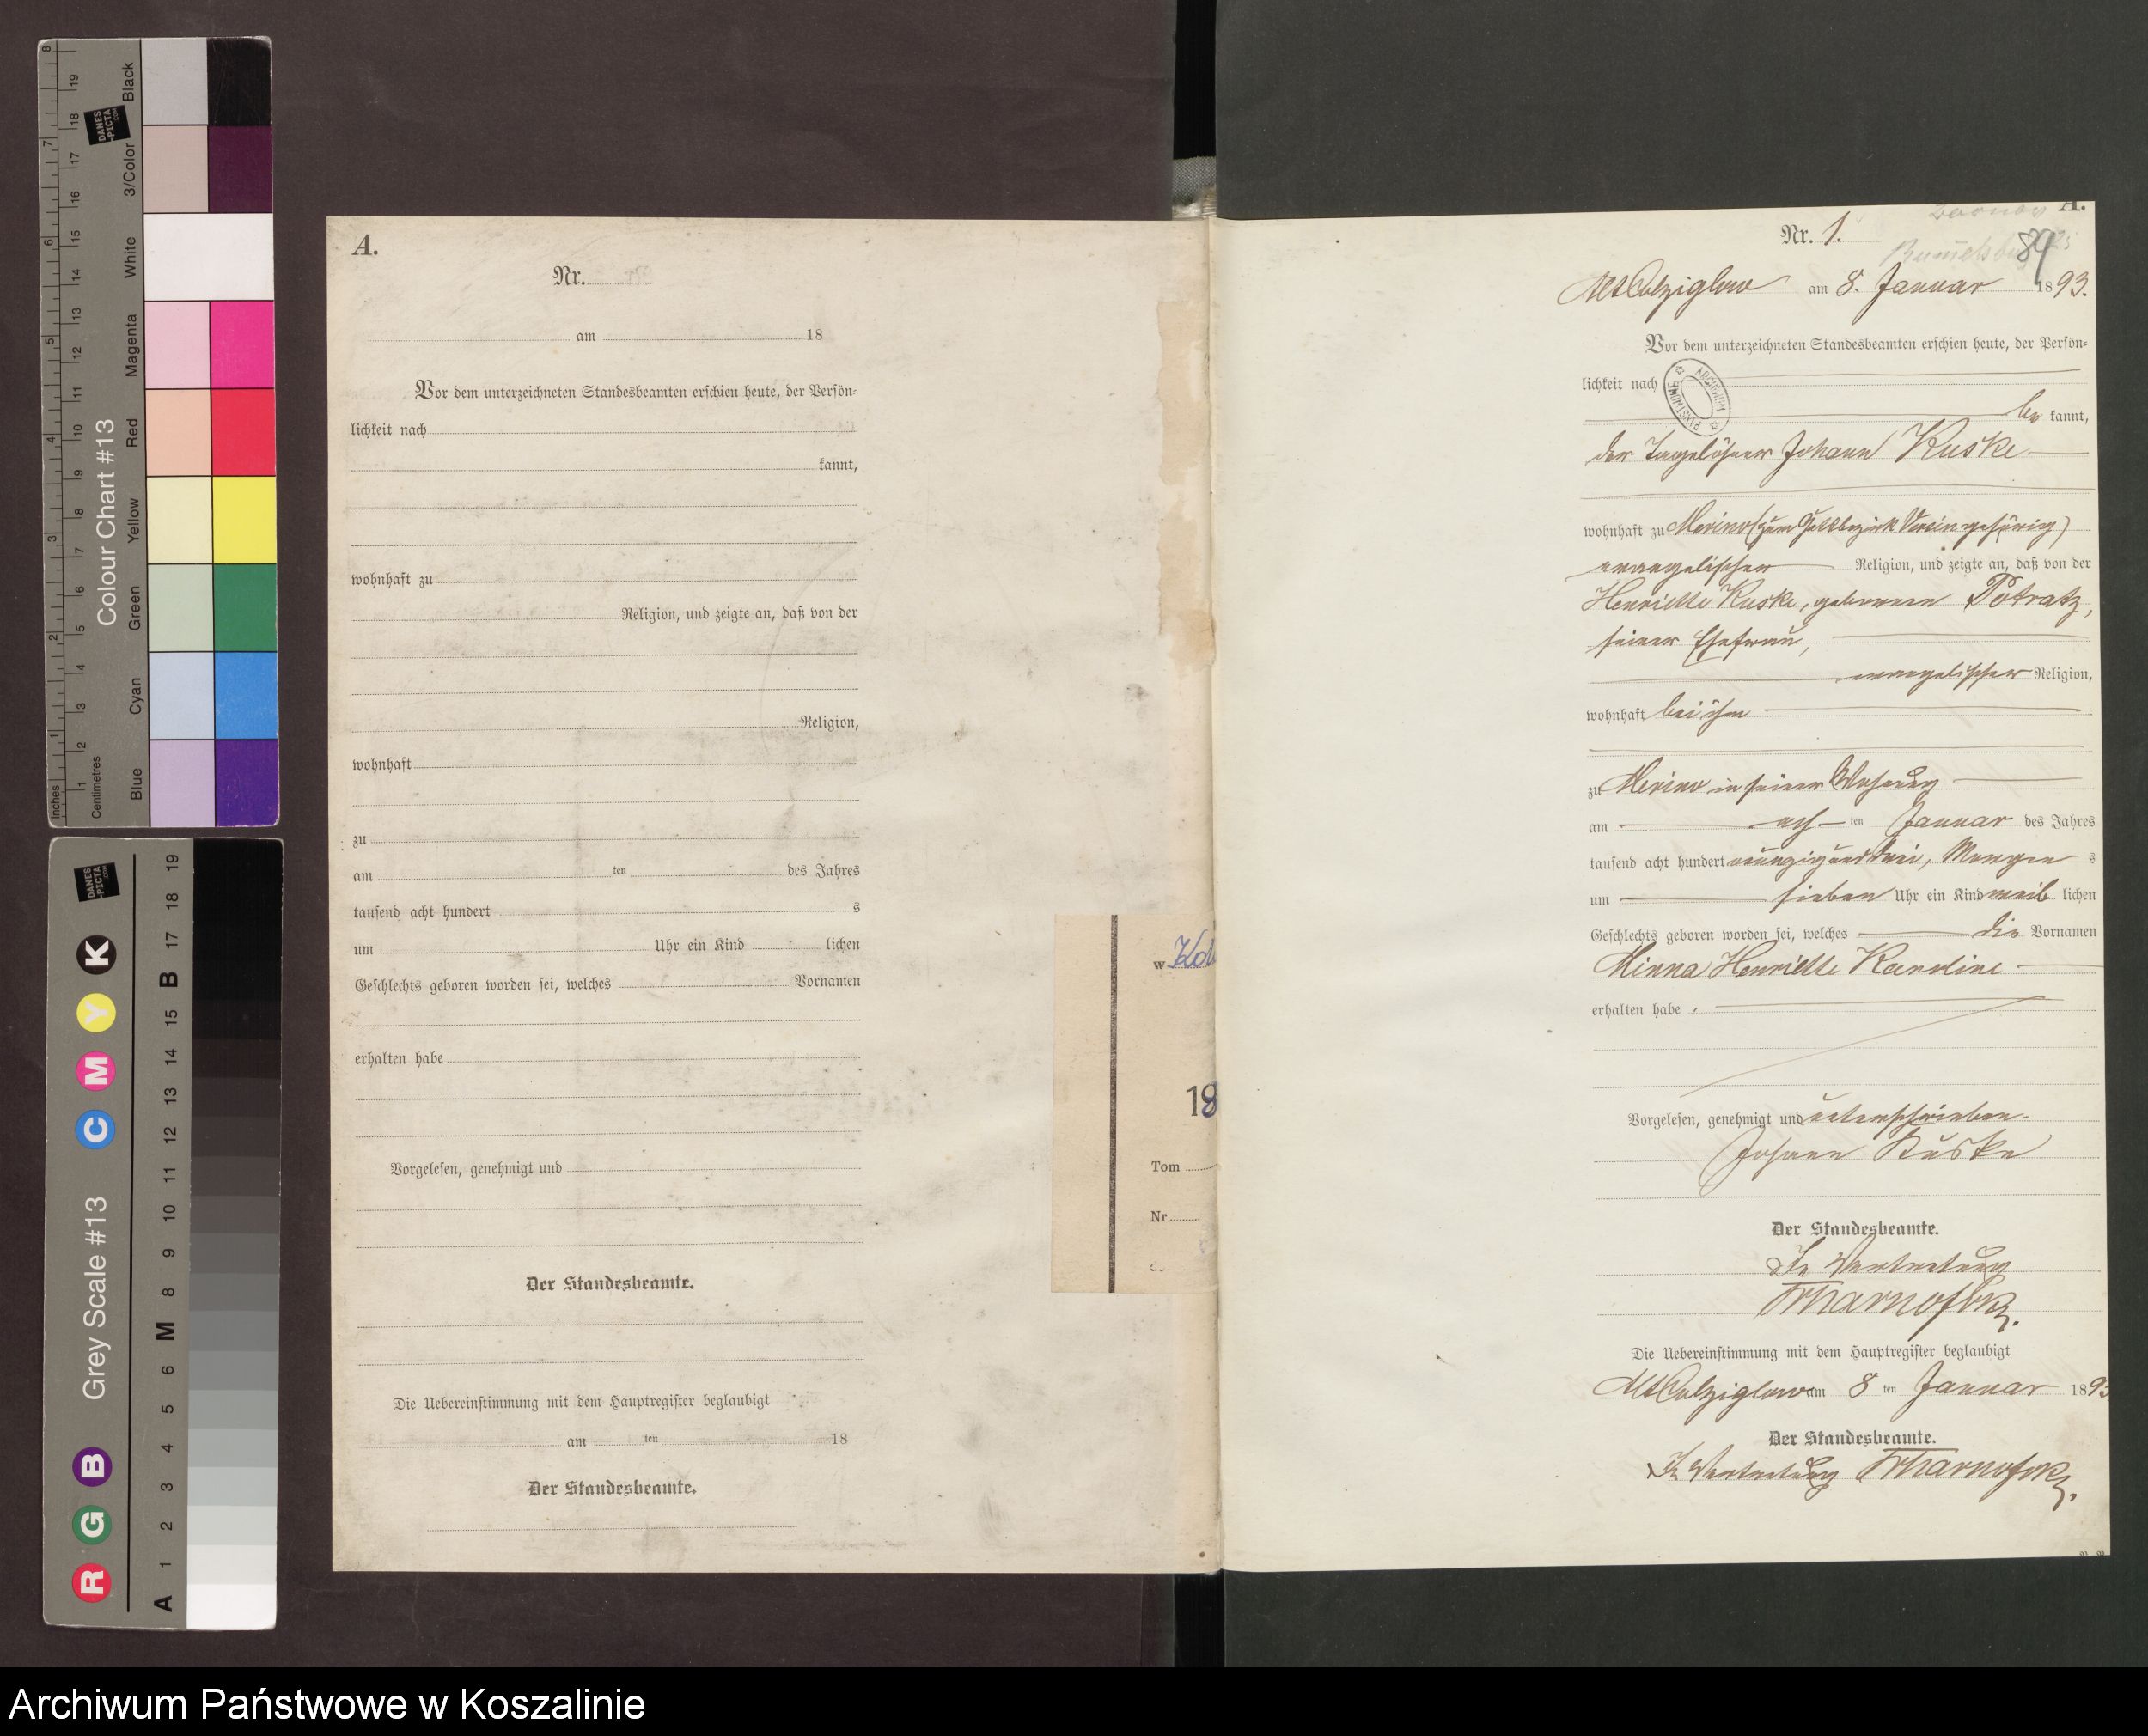 8
7
6
5
4
3
2
1
Inches
19
18
17
16
15
14
13
12
11
10
9
8
7
6
5
4
3
2
1
Centimetres
DANES
-PICTA
.COM
Colour Chart #13
Black
3/Color
White
Magenta
Red
Yellow
Green
Cyan
Blue
DANES
-PICTA
.COM
Grey Scale #13
R G B C M Y K
A 1 2 3 4 5 6 M 8 9 10 11 12 13 14 15 B 17 18 19
A.
Nr.
am 18
Vor dem unterzeichneten Standesbeamten erschien heute, der Persön-
lichkeit nach
kannt,
wohnhaft zu
Religion, und zeigte an, daß von der
Religion,
wohnhaft
zu
am ten des Jahres
tausend acht hundert s
um Uhr ein Kind lichen
Geschlechts geboren worden sei, welches Vornamen
erhalten habe
Vorgelesen, genehmigt und
Der Standesbeamte.
Die Uebereinstimmung mit dem Hauptregister beglaubigt
am ten 18
Der Standesbeamte.
w
18
Tom
Nr
A.
Nr. 1.
89
Alt Colziglow am 8. Januar 1893.
Vor dem unterzeichneten Standesbeamten erschien heute, der Persön-
lichkeit nach
be kannt,
der Tagelöhner Johann Kuske
wohnhaft zu Merino (zum Gutsbezirk Versin gehörig)
evangelischer Religion, und zeigte an, daß von der
Henriette Kuske, geborenen Potratz,
seiner Ehefrau,
evangelischer Religion,
wohnhaft bei ihm
zu Merino in seiner Wohnung
am ach ten Januar des Jahres
tausend acht hundert neunzig und drei, Morgen s
um sieben Uhr ein Kind weib lichen
Geschlechts geboren worden sei, welches die Vornamen
Minna Henriette Karoline
erhalten habe.
Vorgelesen, genehmigt und unterschrieben.
Johann Kuske
Der Standesbeamte.
In Vertretung
Die Uebereinstimmung mit dem Hauptregister beglaubigt
Alt Colziglow am 8 ten Januar 1893
Der Standesbeamte.
In Vertretung
Archiwum Państwowe w Koszalinie